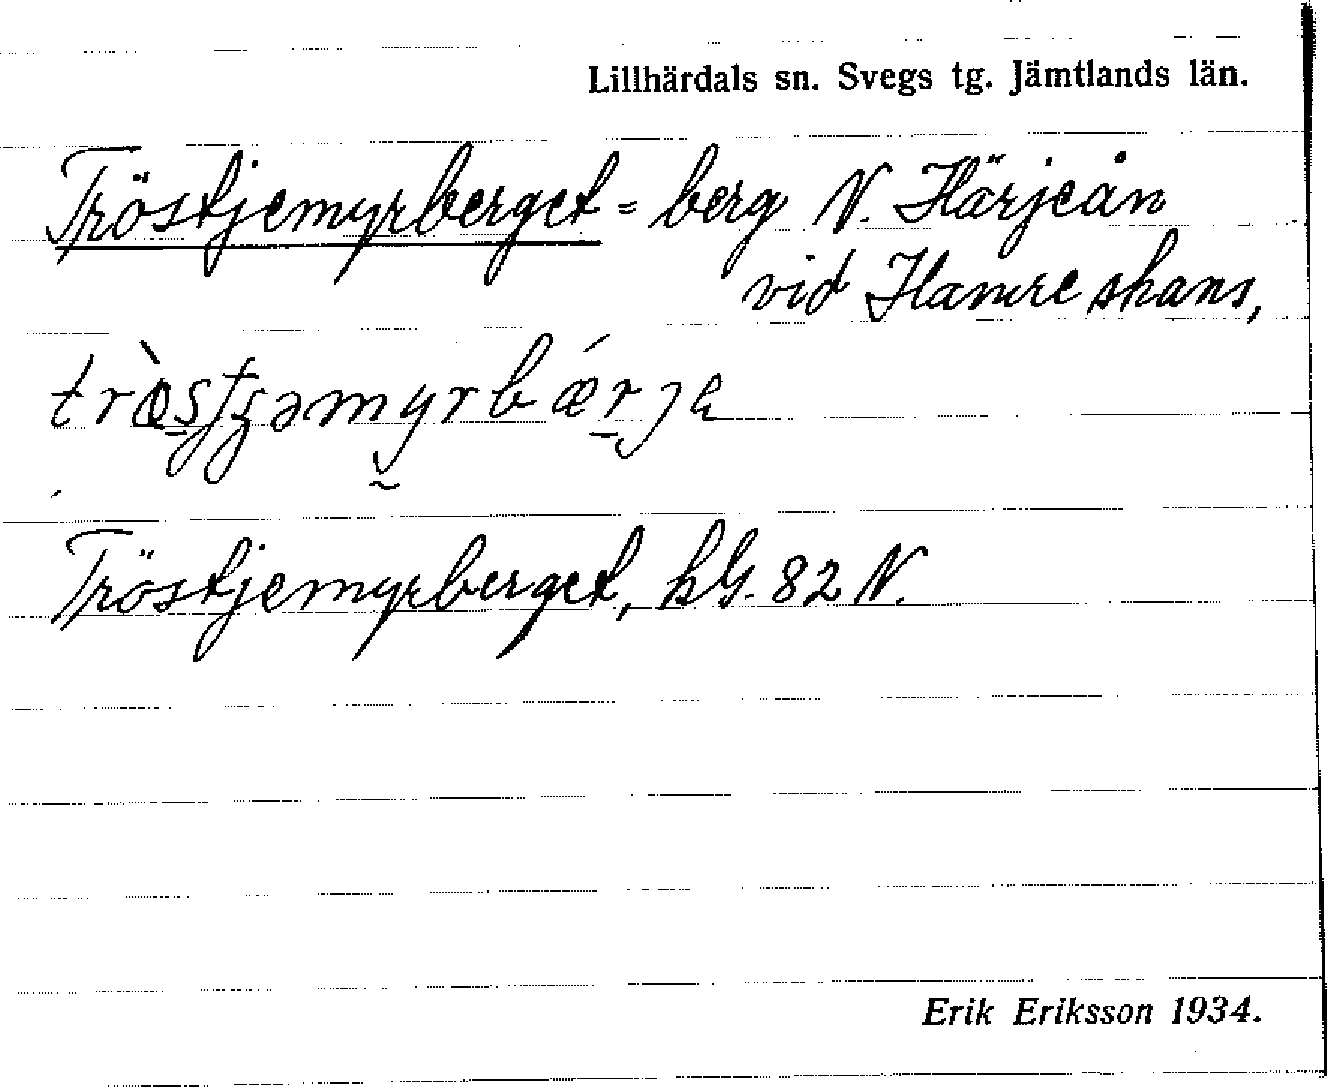 Lillhärdals sn. Svegs tg. Jämtlands län.
Tröstjemyrberget = berg N. Härjeån
vid Hamre skans,
Tröstjemyrberget, kG. 82 N.
Erik Eriksson 1934.